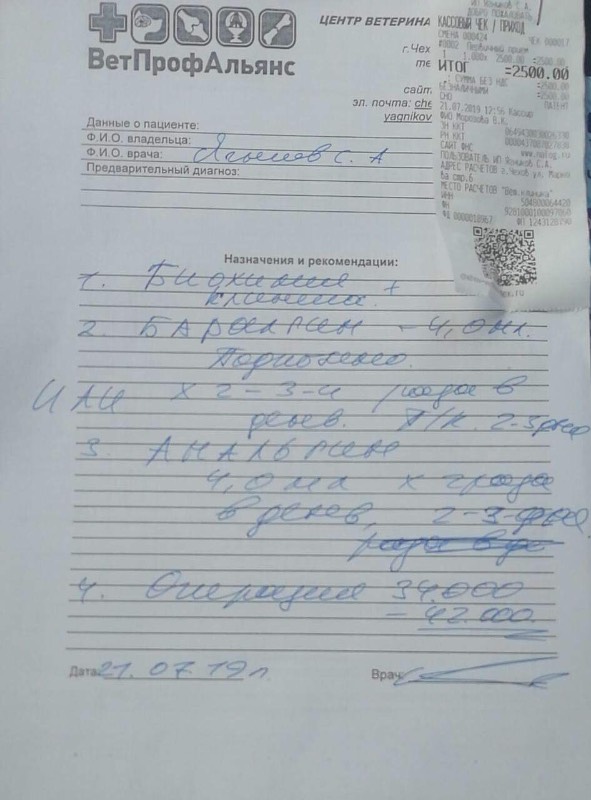 ВетПрофАльянс
ЦЕНТР ВЕТЕРИНА
г.Чех
те
сайт
эл. почта: che
yagnikov
Данные о пациенте:
Ф.И.О. владельца:
Ф.И.О. врача: С. А
Предварительный диагноз:
ДОБРО ПОЖАЛОВАТЬ
КАССОВЫЙ ЧЕК / ПРИХОД
СМЕНА 000424
#0002 Первичный прием
1 1.000x 2500.00 =2500.00
ИТОГ =2500.00
СУММА БЕЗ НДС =2500.00
БЕЗНАЛИЧНЫМИ =2500.00
СНО ПАТЕНТ
21.07.2019 12:56 Кассир
ФИО Морозова В.К.
ЗН ККТ
РН ККТ
САЙТ ФНС www.nalog.ru
ПОЛЬЗОВАТЕЛЬ ИП
АДРЕС РАСЧЕТОВ г.Чехов ул.
МЕСТО РАСЧЕТОВ "Вет.клиника"
ИНН
ФН
ФД
Назначения и рекомендации:
1. Биохимия +
клиника.
2. БАРАЛГИН - 4,0 мл.
Подкожно.
ИЛИ х 2-3-и раза в
день. П/К. 2-3 дня
3. АНАЛЬГИН
4,0 мл х 2 раза
в день, 2-3-дня
4. Операция 34.000
- 42.000.
Дата 21.07 19 г.
Врач